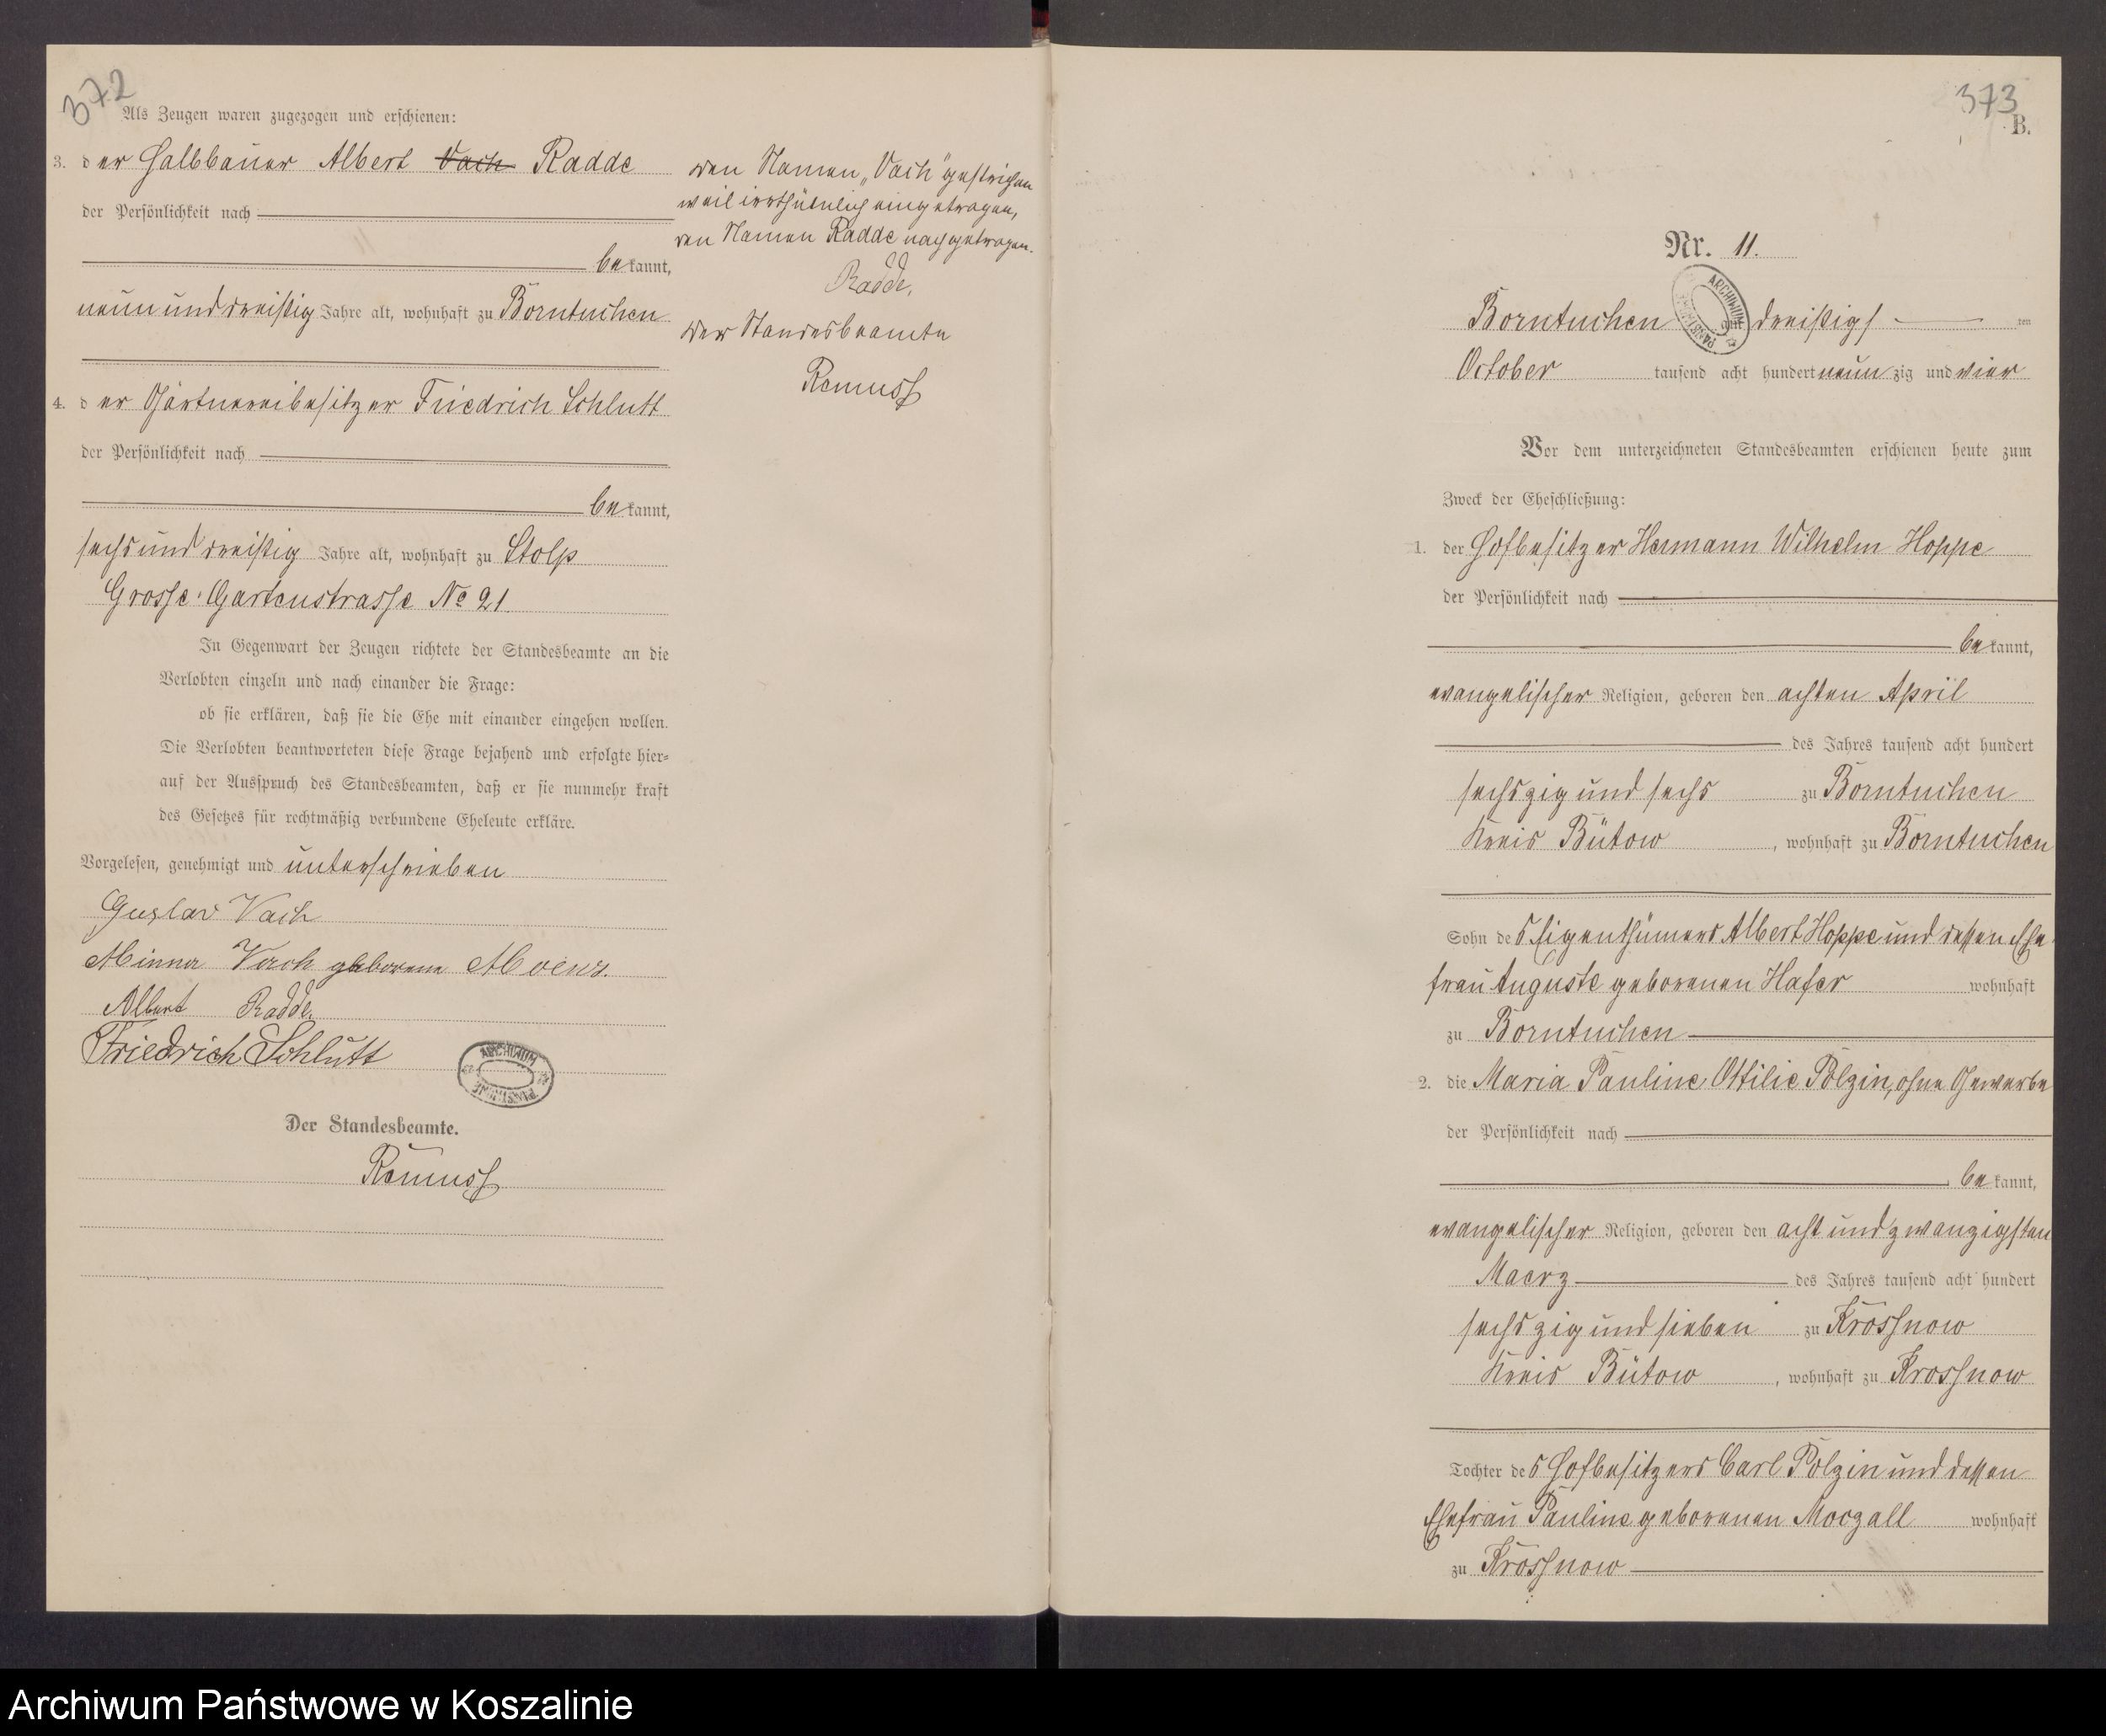 372
Als Zeugen waren zugezogen und erschienen:
3. der Halbbauer Albert Vach Radde
der Persönlichkeit nach
bekannt,
neun und dreißig Jahre alt, wohnhaft zu Borntuchen
4. der Gärtnereibesitzer Friedrich Schlutt
der Persönlichkeit nach
bekannt,
sechs und dreißig Jahre alt, wohnhaft zu Stolp
Grosse Gartenstrasse No 21.
In Gegenwart der Zeugen richtete der Standesbeamte an die
Verlobten einzeln und nach einander die Frage:
ob sie erklären, daß sie die Ehe mit einander eingehen wollen.
Die Verlobten beantworteten diese Frage bejahend und erfolgte hier-
auf der Ausspruch des Standesbeamten, daß er sie nunmehr kraft
des Gesetzes für rechtmäßig verbundene Eheleute erkläre.
Vorgelesen, genehmigt und unterschrieben
Gustav Vach
Minna Vach geborene
Albert Radde.
Friedrich Schlutt
ARCHIWUM PAŃSTWOWE
Der Standesbeamte.
Remuss
den Namen „Vach" gestrichen
weil irrthümlich eingetragen,
den Namen Radde nachgetragen.
Radde.
Der Standesbeamte
Remuss
373
B.
Nr. 11.
ARCHIWUM PAŃSTWOWE
Borntuchen am dreißigsten
October tausend acht hundert neunzig und vier
Vor dem unterzeichneten Standesbeamten erschienen heute zum
Zweck der Eheschließung:
1. der Hofbesitzer Hermann Wilhelm Hoppe
der Persönlichkeit nach
bekannt,
evangelischer Religion, geboren den achten April
des Jahres tausend acht hundert
sechszig und sechs zu Borntuchen
Kreis Bütow, wohnhaft zu Borntuchen
Sohn des Eigenthümers Albert Hoppe und dessen Ehe-
frau Auguste geborenen Hafer wohnhaft
zu Borntuchen
2. die Maria Pauline Ottilie Polzin, ohne Gewerbe
der Persönlichkeit nach
bekannt,
evangelischer Religion, geboren den acht und zwanzigsten
Maerz des Jahres tausend acht hundert
sechszig und sieben zu Krossnow
Kreis Bütow, wohnhaft zu Krossnow
Tochter des Hofbesitzers Carl Polzin und dessen
Ehefrau Pauline geborenen Moczall wohnhaft
zu Krossnow
Archiwum Państwowe w Koszalinie